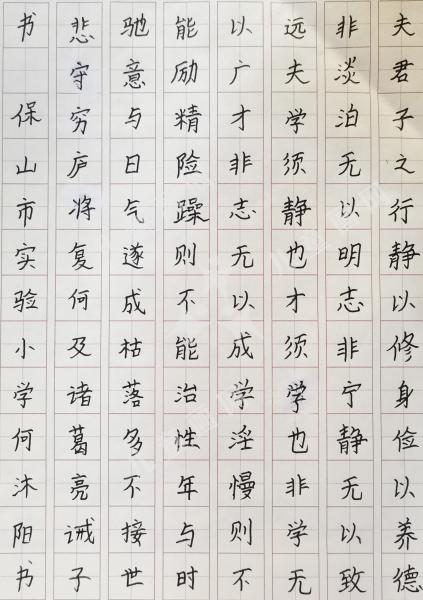 夫君子之行静以修身俭以养德
非淡泊无以明志非宁静无以致
远夫学须静也才须学也非学无
以广才非志无以成学淫慢则不
能励精险躁则不能治性年与时
驰意与日气遂成枯落多不接世
悲守穷庐将复何及诸葛亮诫子
书 保山市实验小学何沐阳书